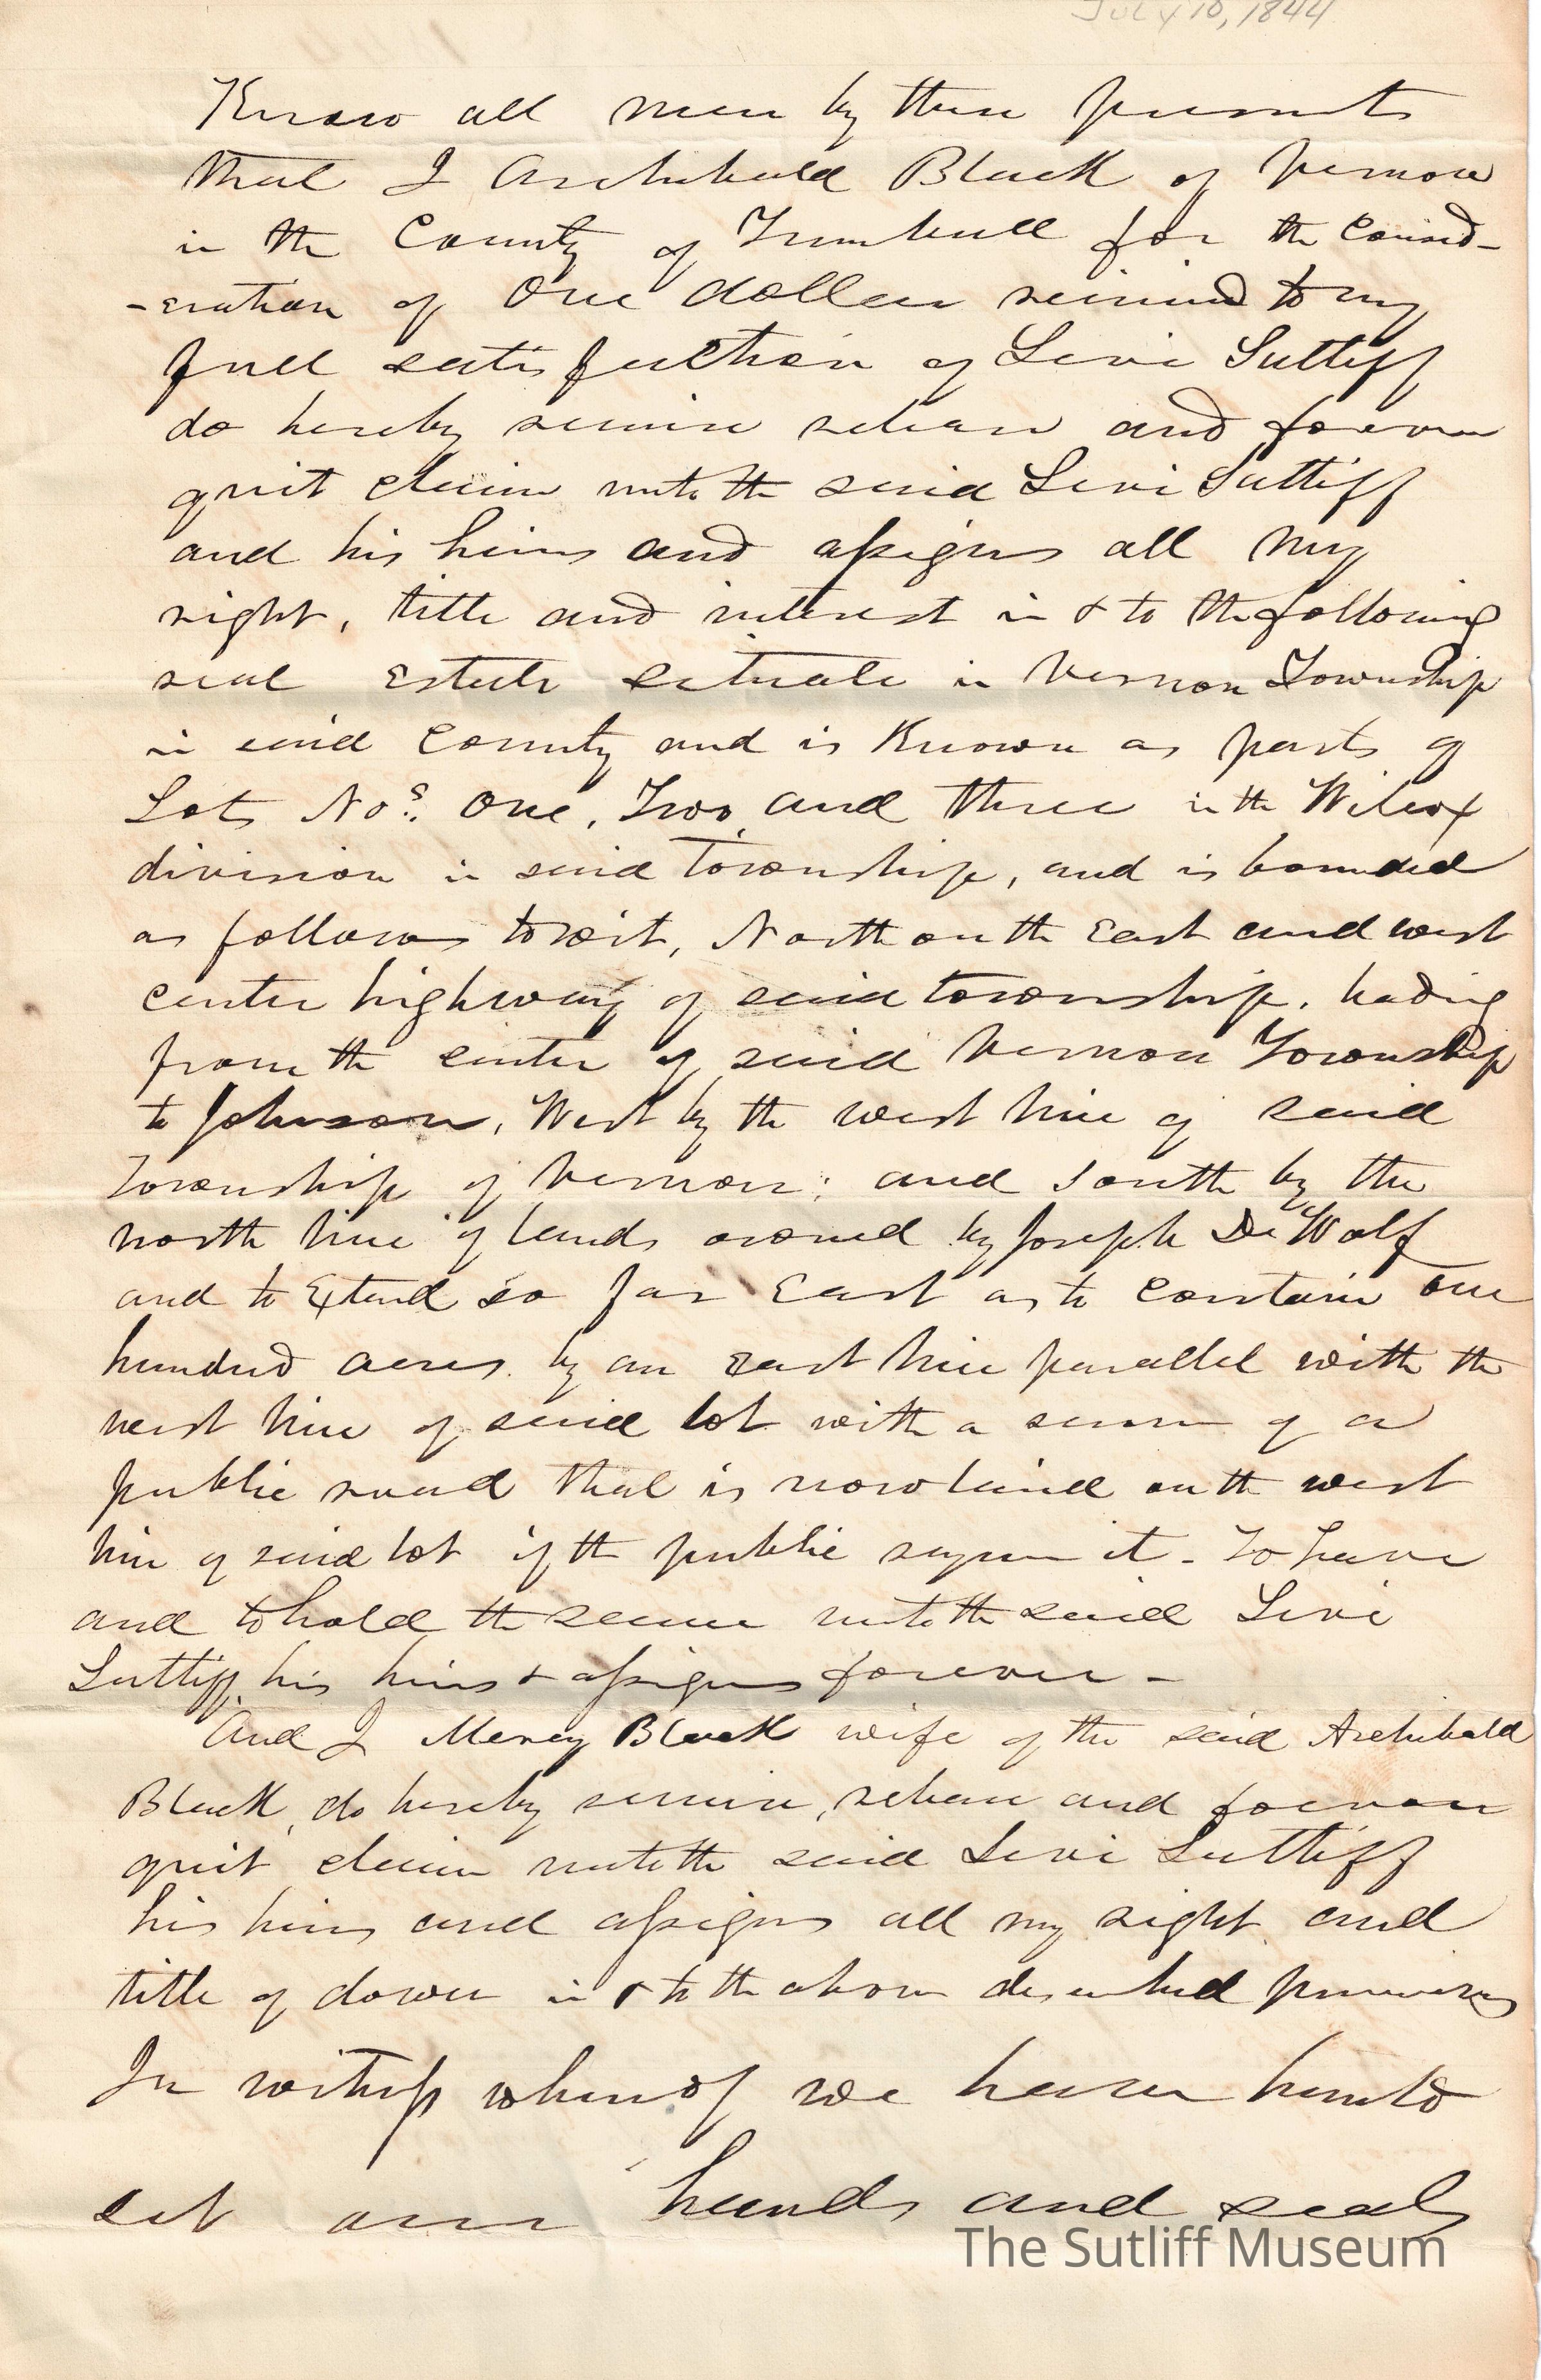 July 10, 1844
Know all men by these presents
that I Archibald Black of Vernon
in the County of Trumbull for the Consid-
-eration of One dollar received to my
full satisfaction of Levi Sutliff
do hereby remise release and forever
quit claim unto the said Levi Sutliff
and his heirs and assigns all my
right, title and interest in & to the following
real Estate situate in Vernon Township
in said County and is Known as parts of
Lots Nos. One, Two, and three in the Wilcox
division in said Township, and is bounded
as follows towit, North on the East and west
center highway of said township, leading
from the center of said Vernon Township
to Johnson, West by the west line of said
Township of Vernon; and South by the
north line of lands owned by Joseph De Wolf
and to Extend so far East as to Contain one
hundred acres by an East line parallel with the
west line of said lot with a reserve of a
public road that is now laid on the west
line of said lot if the public require it - To have
and to hold the same unto the said Levi
Sutliff, his heirs & assigns forever -
And I Mercy Black wife of the said Archibald
Black, do hereby remise, release and forever
quit claim unto the said Levi Sutliff
his heirs and assigns all my right and
title of dower in & to the above described premises
In witness whereof we have hereunto
set our hands and seals
The Sutliff Museum